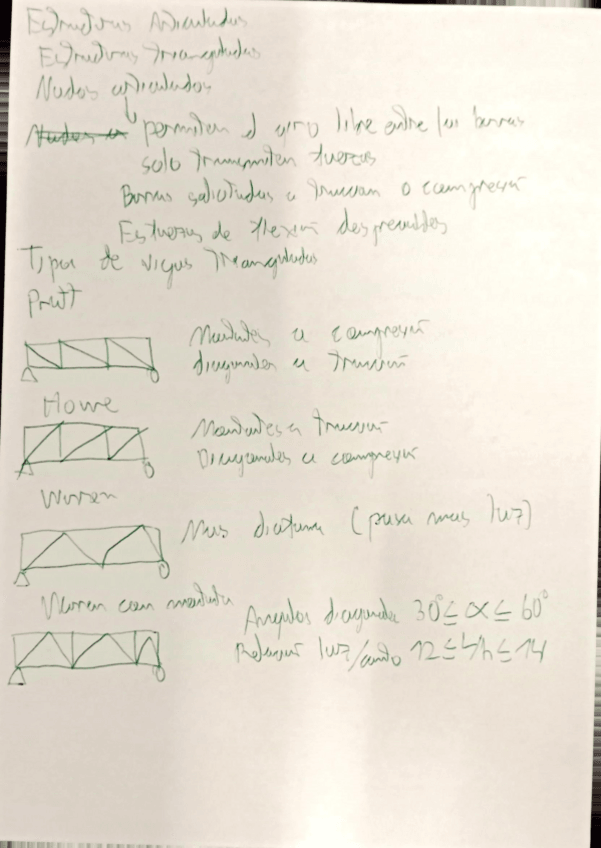 Estructuras Articuladas
Estructuras Trianguladas
Nudos articulados
Nudos a permiten el giro libre entre las barras
solo transmiten fuerzas
Barras solicitadas a traccion o compresión
Esfuerzos de flexión despreciables
Tipos de vigas Trianguladas
Pratt
Montantes a compresión
diagonales a tracción
Howe
Montantes a tracción
Diagonales a compresión
Warren
Mas diafana (pasa mas luz)
Warren con montante
Angulos diagonales 30° ≤ α ≤ 60°
Relación luz/canto 12 ≤ L/h ≤ 14